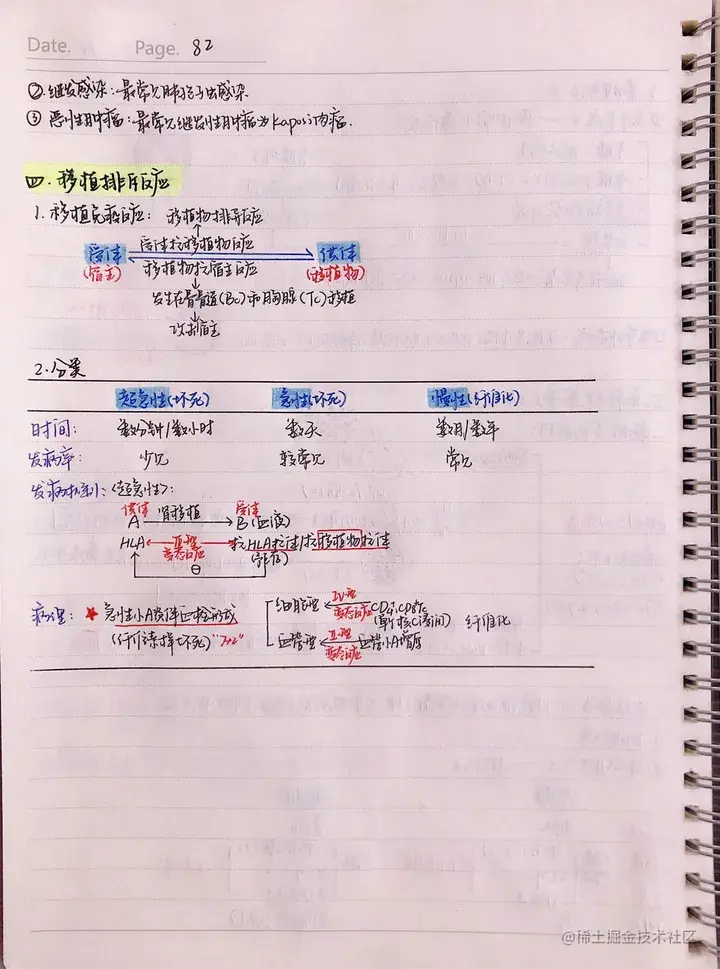 Date. Page. 82
② 继发感染：最常见肺孢子虫感染.
③ 恶性肿瘤：最常见继发性肿瘤为Kaposi肉瘤.
四. 移植排斥反应
1. 移植免疫反应： 移植物排斥反应
受体抗移植物反应
受体 供体
(宿主) 移植物抗宿主反应 (移植物)
发生在骨骨道(Bc)和胸腺(Tc)移植
攻击宿主
2. 分类
超急性(坏死) 急性(坏死) 慢性(纤维化)
时间： 数分钟/数小时 数天 数月/数年
发病率： 少见 较常见 常见
发病机制：<超急性>：
供体 受体
A 肾移植 B(血液)
HLA Ⅱ型 抗HLA抗体/抗移植物抗体
变态反应
⊖
病理： ★ 急性小A炎伴血栓形成
(纤维素样坏死)"7+2"
细胞型 Ⅳ型 变态反应 CD4,CD8Tc
纤维化
血管型 Ⅱ型 变态反应 血管
@稀土掘金技术社区